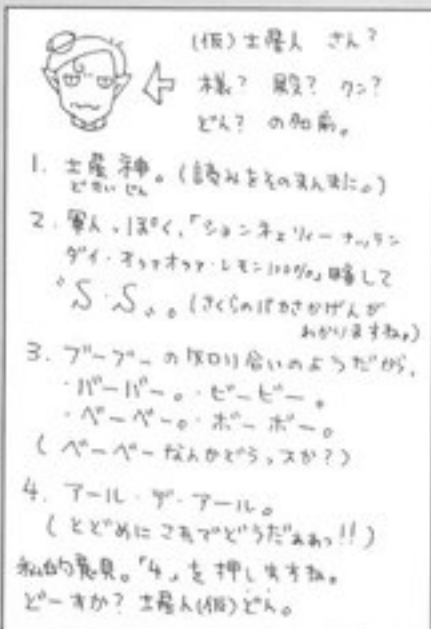 (仮)土星人 さん?
様? 殿? クン?
どん? の名前。
1. 土星神。(読みをそのまんまに。)
どせいじん
2. 軍人っぽく、「ション
ダイ・オ レモン100%」略して
"S・S"。(さくらのバカさかげんが
わかりますね。)
3. ブーブーの知り合いのようだから、
・バーバー。・ビービー。
・ベーベー。・ボーボー。
(ベーベーなんかどうっスか?)
4. アール・デ・アール。
(とどめにこれでどうだぁぁっ!!)
私的意見。「4」を押しますね。
どーすか? 土星人(仮)どん。